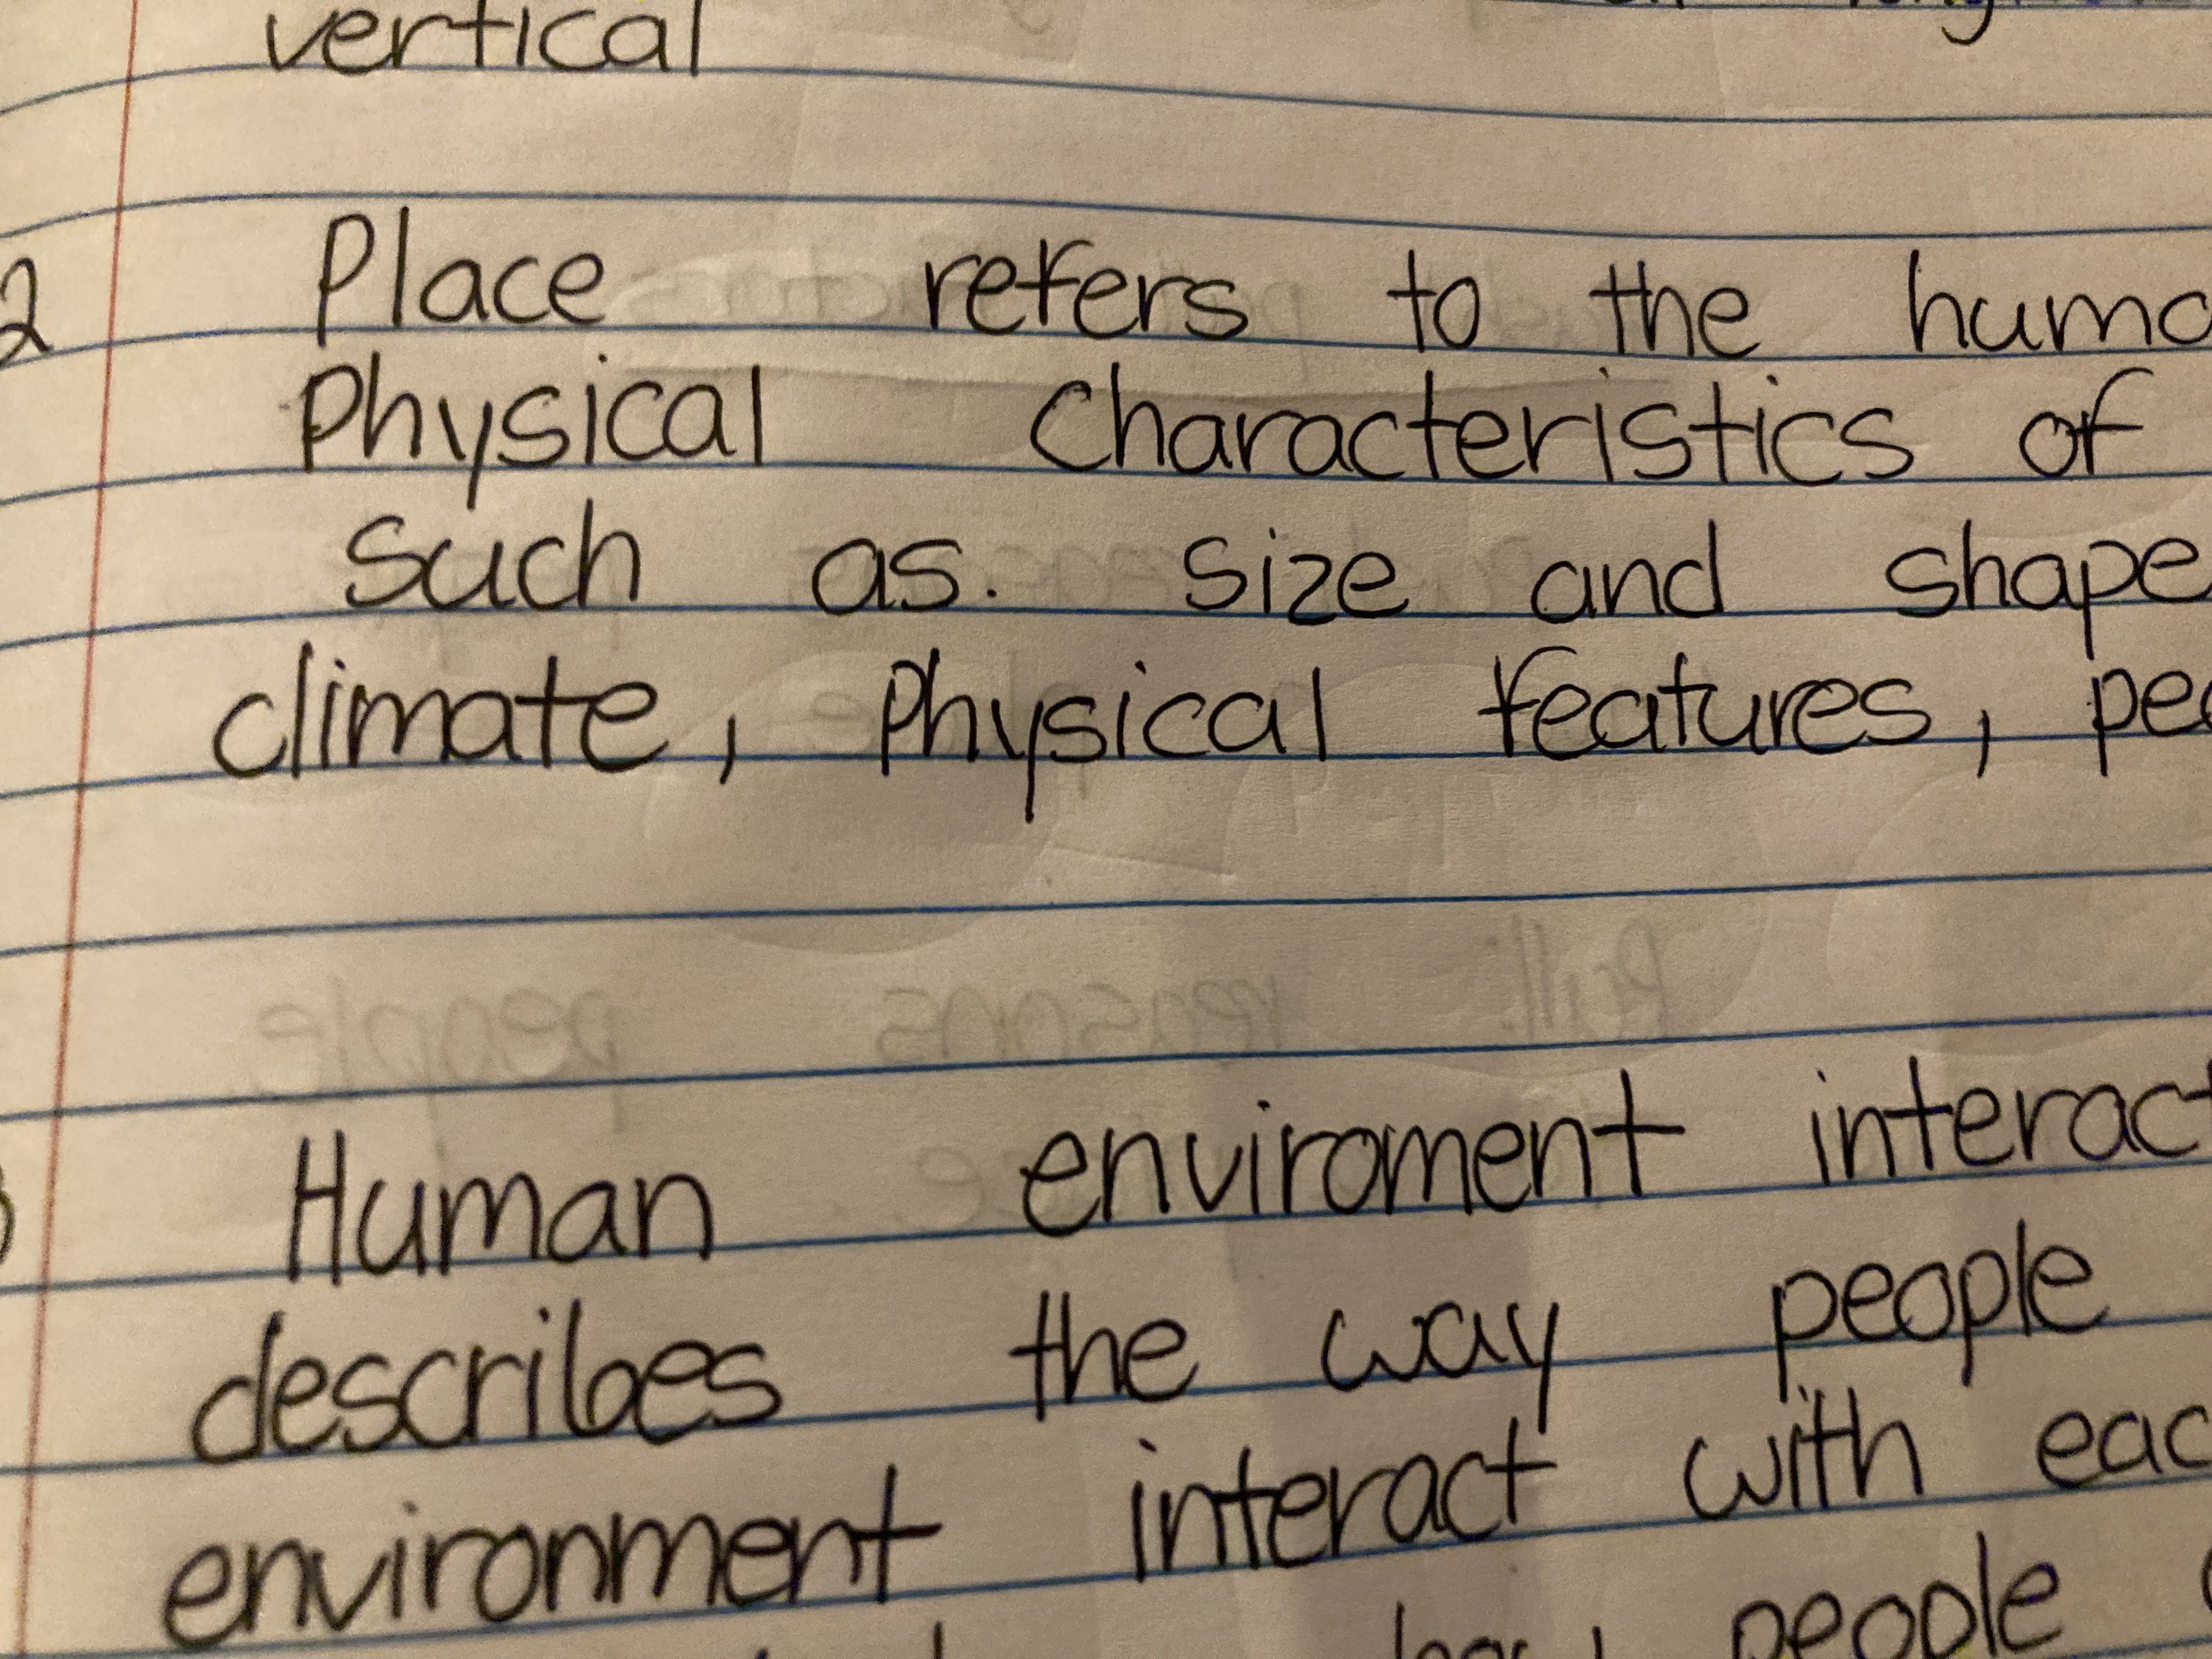 vertical
2 Place refers to the huma
Physical Characteristics of
such as. size and shape
climate, Physical features, peo
Human enviroment interact
describes the way people
environment interact with eac
people